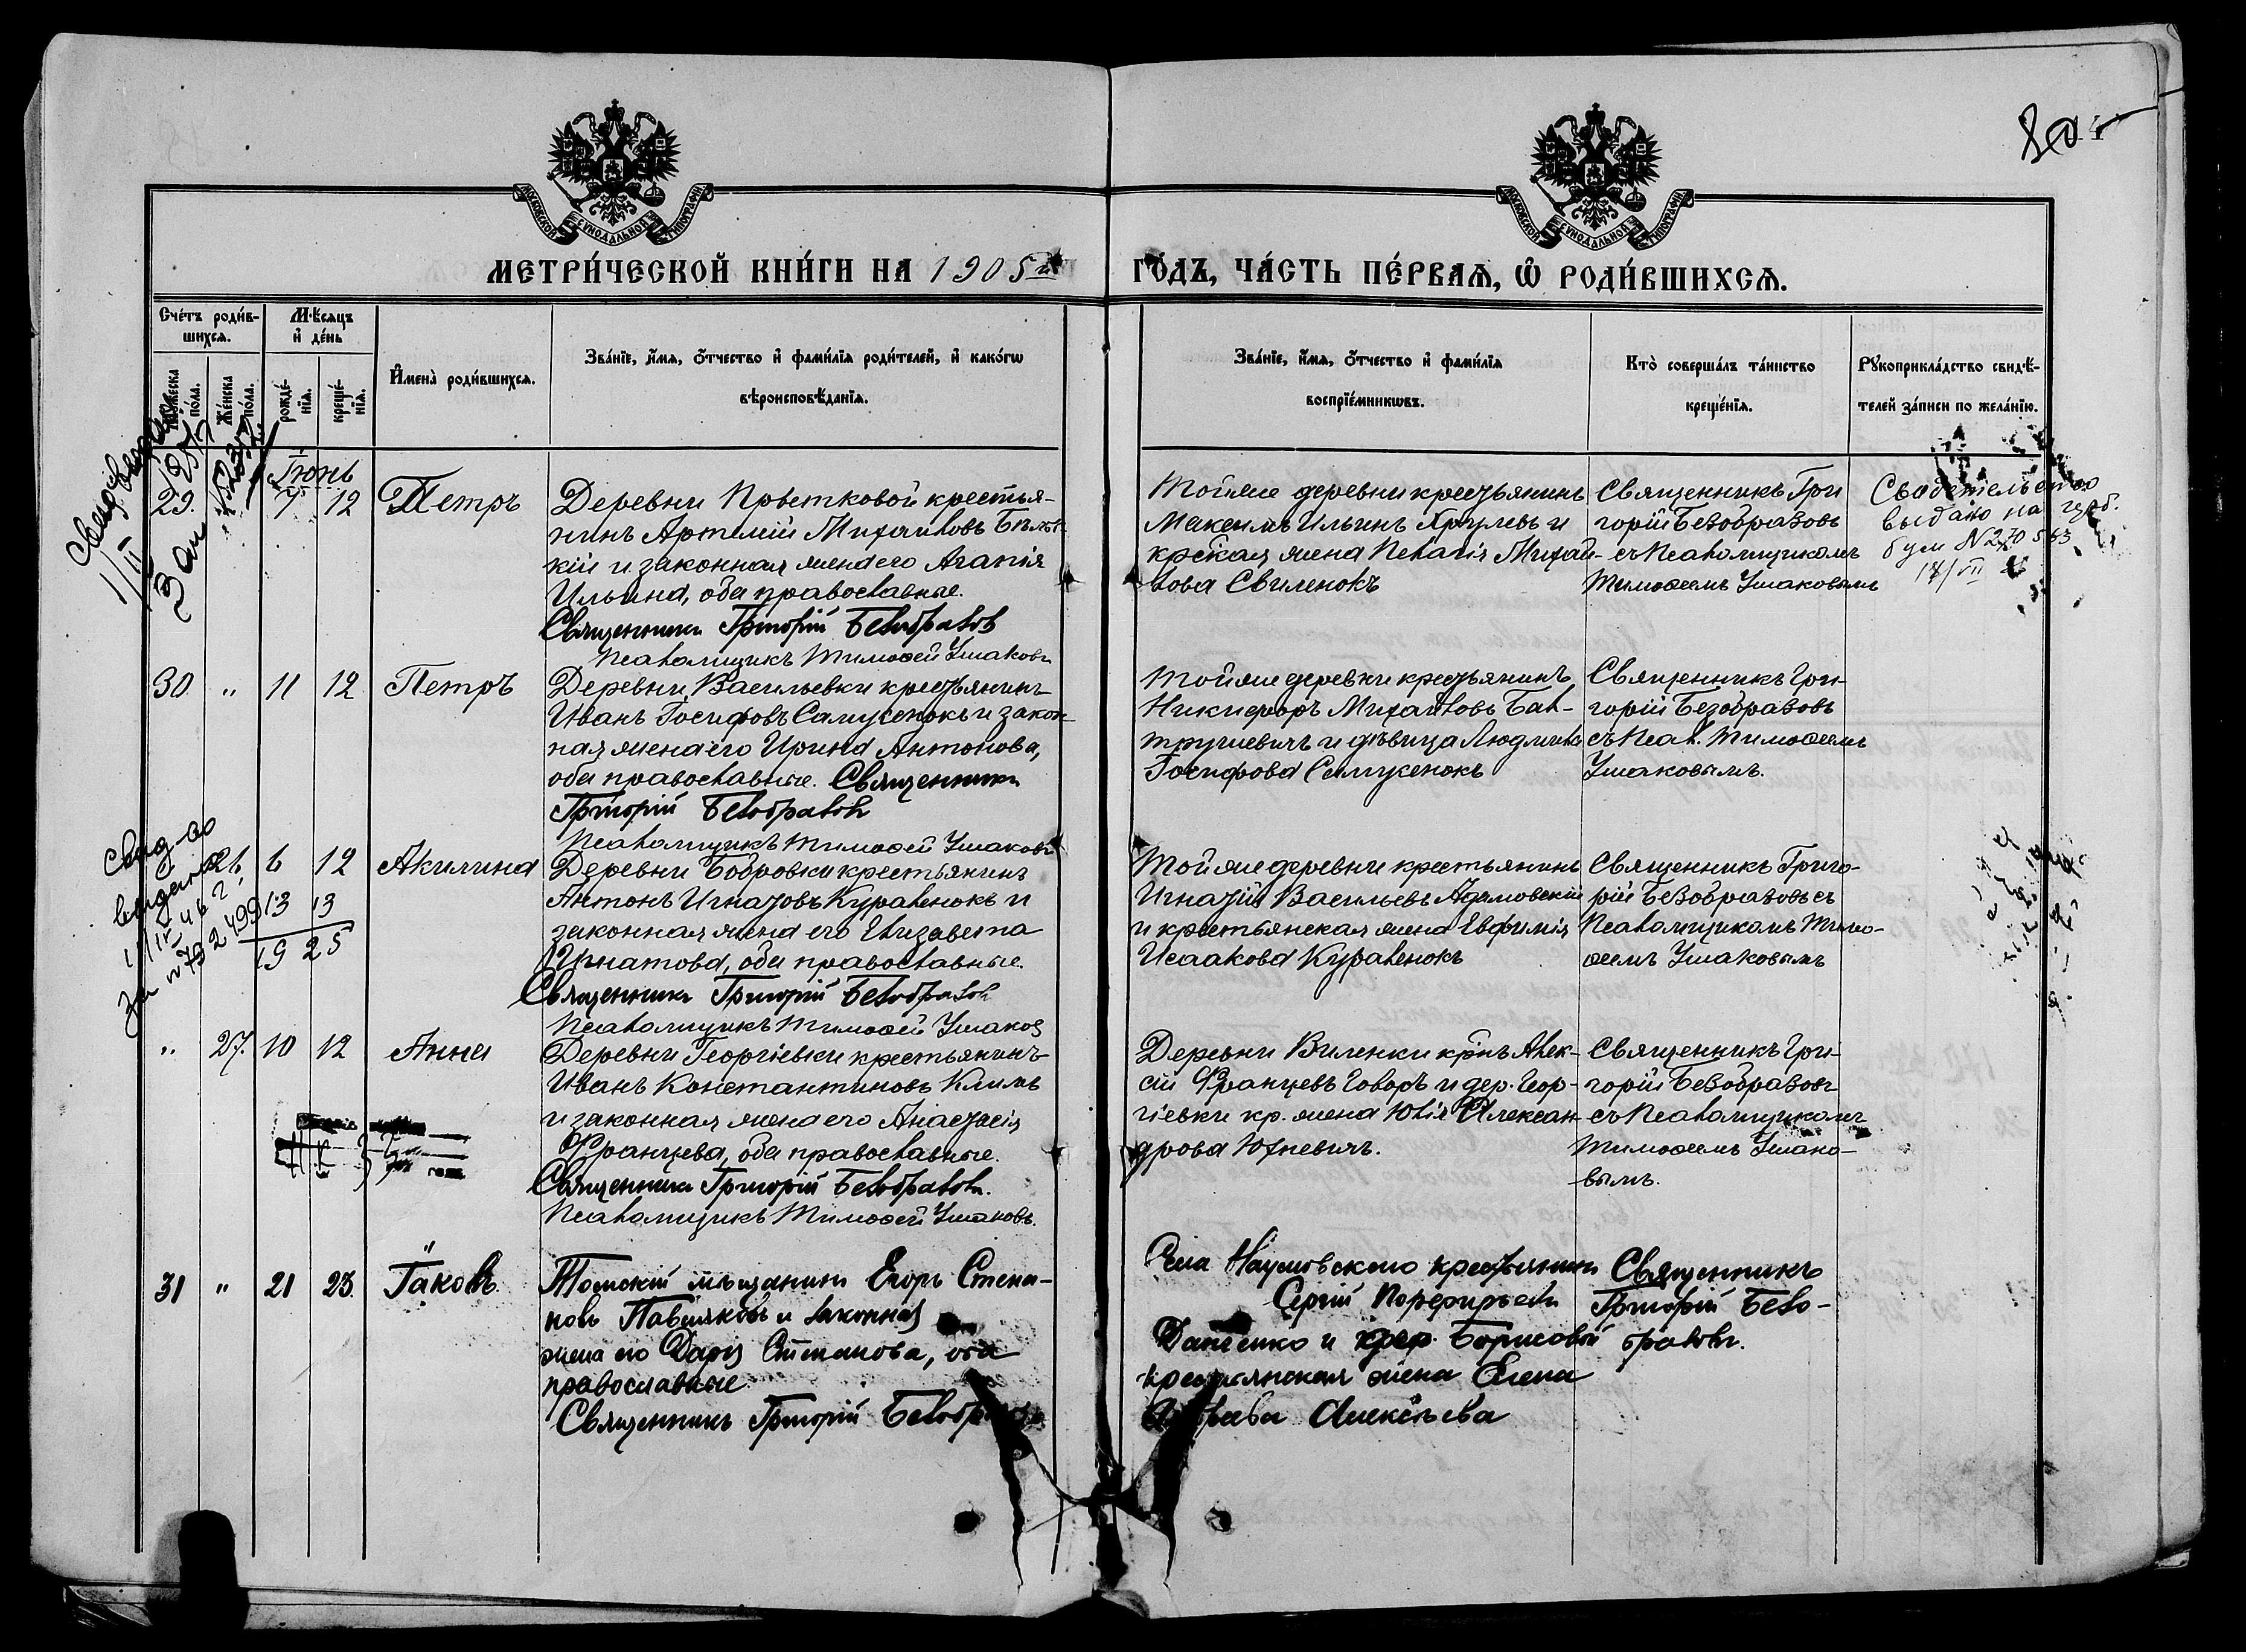 МЕТРИ́ЧЕСКОЙ КНИ́ГИ НА 1905й
ГО́ДЪ, ЧА́СТЬ ПЕ́РВАѦ, Ѡ҆ РОДИ́ВШИХСѦ.
МОСКОВСКОЙ СѴНОДАЛЬНОЙ ТИПОГРАФІИ
МОСКОВСКОЙ СѴНОДАЛЬНОЙ ТИПОГРАФІИ
Сче́тъ роди́в-
шихсѧ.
Мѣ́сѧцъ
и҆ де́нь
Мꙋ́жеска
по́ла.
Же́нска
по́ла.
рожде́-
нїѧ.
креще́-
нїѧ.
И҆мена̀ роди́вшихсѧ.
Зва́нїе, и҆́мѧ, ѻ҆́тчество и҆ фами́лїѧ роди́телей, и҆ како́гѡ
вѣроисповѣ́данїѧ.
Зва́нїе, и҆́мѧ, ѻ҆́тчество и҆ фами́лїѧ
воспрїе́мникѡвъ.
Кто̀ соверша́лъ та́инство
креще́нїѧ.
Рꙋкоприкла́дство свидѣ́-
телей за́писи по жела́нїю.
Іюнь
29. 7 12 Петръ
Деревни Цвѣтковой крестья-
нинъ Артемій Михайловъ
кій и законная жена его Агапія
Ильина, оба православные.
Священникъ Григорій Безобразовъ
Псаломщикъ Тимоѳей Ушаковъ
Той же деревни крестьянинъ
Максимъ Ильинъ и
крс̃кая жена Пелагія Михай-
лова Свиленокъ
Священникъ Гри
горій Безобразовъ
съ Псаломщикомъ
Тимоѳеемъ Ушаковымъ
Свидетельство
выдано на герб.
бум №
30 " 11 12 Петръ
Деревни Васильевки крестьянинъ
Иванъ Іосифовъ Самусенокъ и закон
ная жена его Ирина Антонова,
оба православные. Священникъ
Григорій Безобразовъ
Псаломщикъ Тимоѳей Ушаковъ
Той же деревни крестьянинъ
Никифоръ Михайловъ Бал-
трушевичъ и дѣвица Людмила
Іосифова Самусенокъ
Священникъ Гри-
горій Безобразовъ
съ Псал. Тимоѳеемъ
Ушаковымъ.
Свид-во
выдано
26. 6 12 Акилина
13 13
19 25
Деревни Бобровки крестьянинъ
Антонъ Игнатовъ Кураленокъ и
законная жена его Елизавета
Игнатова, оба православные.
Священникъ Григорій Безобразовъ
Псаломщикъ Тимоѳей Ушаковъ
Той же деревни крестьянинъ
Игнатій Васильевъ Адамовскій
и крестьянская жена Евфимія
Исаакова Кураленокъ
Священникъ Григо-
рій Безобразовъ съ
Псаломщикомъ Тимо-
ѳеемъ Ушаковымъ
" 27. 10 12 Анна
Деревни Георгіевки крестьянинъ
Иванъ Константиновъ Климъ
и законная жена его Анастасія
Францева, оба православные.
Священникъ Григорій Безобразовъ.
Псаломщикъ Тимоѳей Ушаковъ.
Деревни Виленки кр̃нъ Алек-
сій Францевъ Говоръ и дер. Геор-
гіевки кр. жена Юлія Алексан-
дрова Юхневичъ.
Священникъ Гри-
горій Безобразовъ
съ Псаломщикомъ
Тимоѳеемъ Ушако-
вымъ.
31 " 21 23. Іаковъ.
Томскій мѣщанинъ Егоръ Степа-
новъ и законная
жена его Дарія Степанова, оба
православные
Священникъ Григорій Безобразовъ
Села Наумовского крестьянинъ
Сергій Порфирьевъ
Данченко и дер. Борисовой
крестьянская жена Елена
Алексѣева
Священникъ
Григорій Безо-
бразовъ.